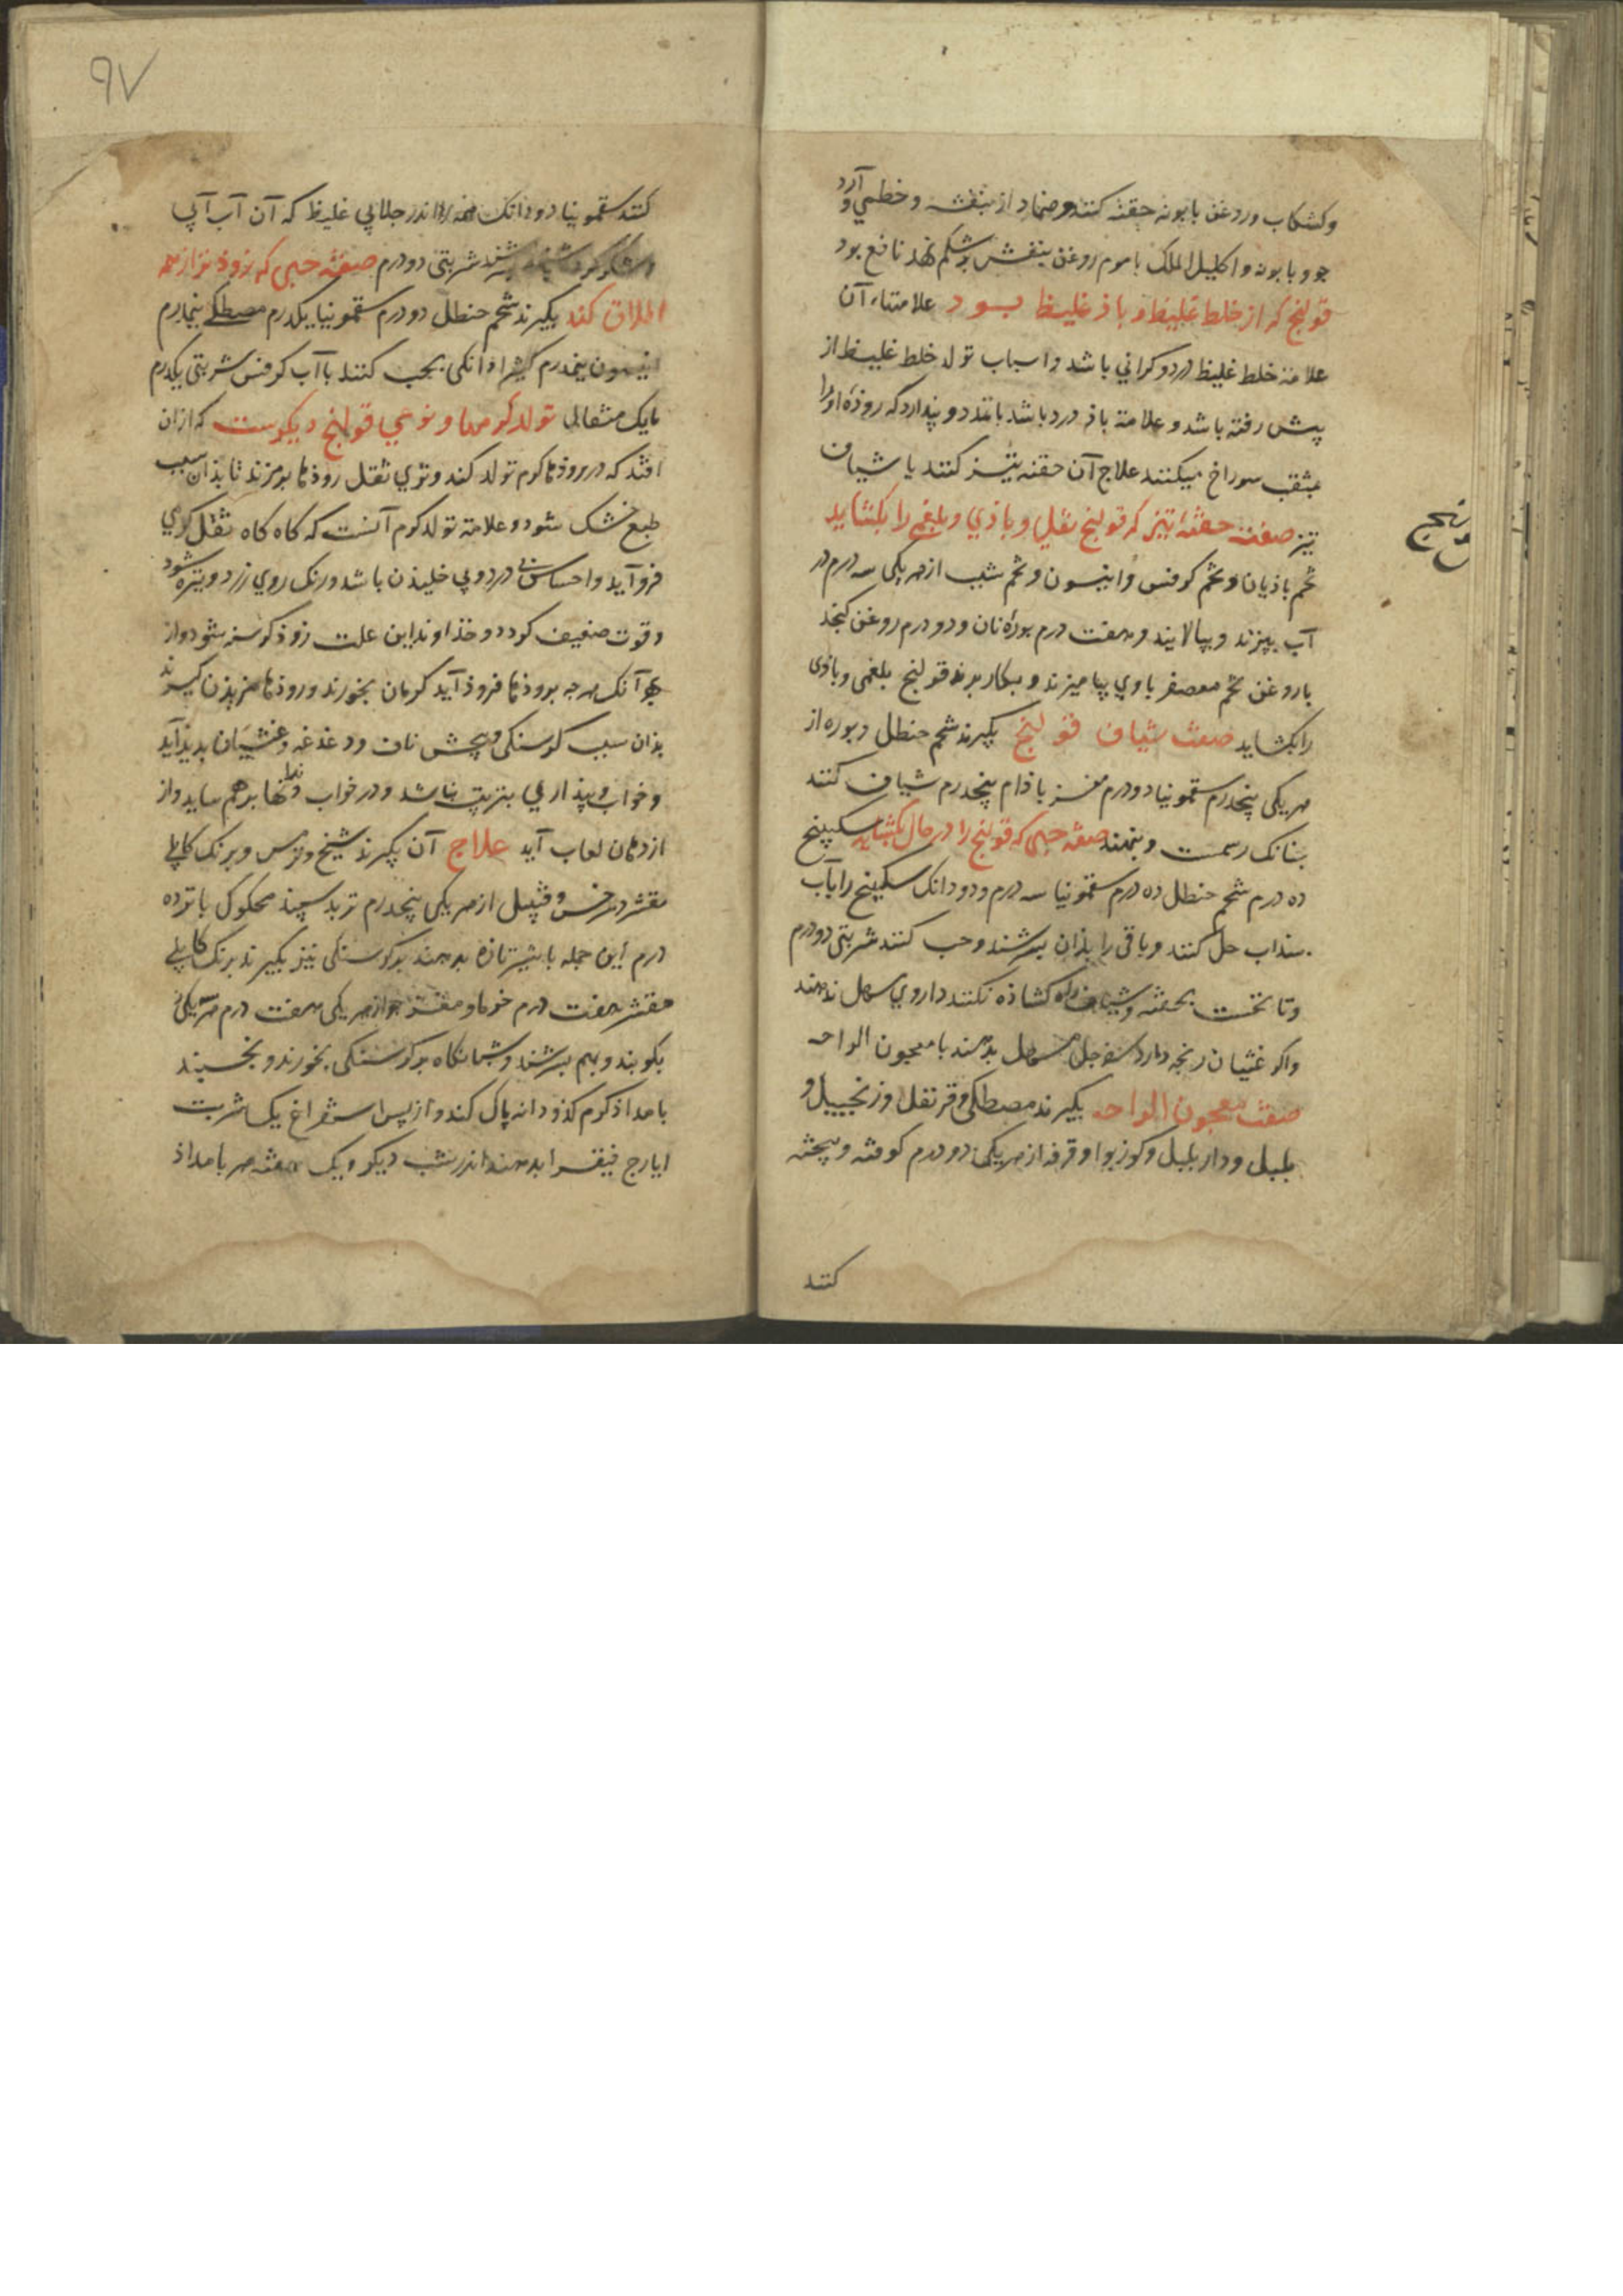 وکشکاب وروغن بابونه حقنه کنند وضماد از بنفشه وخطمي وآرد
جو وبابونه واکلیل الملک باموم روغن بنفش برشکم نهد نافع بود
قولنج که از خلط غلیظ وباذ غلیظ بود علامتهاء آن
علامة خلط غلیظ درد وکراني باشد واسباب تولد خلط غلیظ از
پیش رفته باشد وعلامة باذ درد باشد باتمدد وپندارد که روذهٔ اورا
بمثقب سوراخ میکنند علاج آن حقنه تیز کنند یا شیاف
تیز صفت حقنهٔ تیز که قولنج ثفلي وباذي وبلغمي را بکشاید
تخم باذیان وتخم کرفس وانیسون وتخم شبت از هریکی سه درم در
آب بپزند وبپالایند وهفت درم بورهٔ نان ودو درم روغن کنجذ
باروغن تخم معصفر باوي بیامیزند وبکار برند قولنج بلغمی وباذی
رابکشاید صفت شیاف قولنج بکیرند شحم حنطل وبوره از
هریکی پنجدرم سقمونیا دو درم مغز باذام پنجدرم شیاف کنند
بنانک رسمست وبنهند صفة حبی که قولنج را در حال بکشاید سکبینج
ده درم شحم حنطل ده درم سقمونیا سه درم ودو دانک سکبینج رابآب
سنداب حل کنند وباقی را بذان بسرشند وحب کنند شربتی دو درم
وتا نخست بحقنه وشیاف راه کشاذه نکنند داروي مسهل ندهند
واکر غثیان رنجه دارد سفرجلي مسهل بدهند با معجون الراحه
صفت معجون الراحه بکیرند مصطکی وقرنفل وزنجبیل و
بلبل ودار بلبل وکوزبوا وقرفه از هریکی دو درم کوفته وبیخته
کنند
۹۷
کنند سقمونیا دو دانک همه را اندر جلابي غلیظ که آن آب آبي
بسرشند شربتی دو درم صفة حبی که زوذتر از همه
اطلاق کند بکیرند شحم حنطل دو درم سقمونیا یکدرم مصطکی نیمدرم
انیسون نیمدرم کثیرا دانکی بحب کنند باآب کرفس شربتی یکدرم
تایک مثقالی تولد کرمها ونوعي قولنج دیکرست که ازان
افتد که در روذها کرم تولد کند وتري ثفل روذها برمزند تا بذان سبب
طبع خشک شود وعلامة تولد کرم آنست که کاه کاه ثفل کرمي
فروآید واحساس درد وپي خلیذن باشد ورنک روي زرد وتیره شود
وقوت ضعیف کردد وخذاوند این علت زوذ کرسنه شود واز
بهر آنک هرجه بروذها فروذ آید کرمان بخورند وروذها
بذان سبب کرسنکی وپیچش ناف ودغدغه وغثیان پدیذآید
وخواب وبیذاري بترتیب نباشد ودر خواب دندانها برهم ساید واز
ازدهان لعاب آید علاج آن بکیرند شیح وترمس وبرنک کابلي
مقشر وسرخس وقنبیل از هریکی پنجدرم تربد سپید محکوک پانزده
درم این جمله باشیر تازه بدهند برکرسنکی نیز بکیرند برنک کابلي
مقشر هفت درم خرما ومغز جوز از هریکی هفت درم
بکوبند وبهم بسرشند وشبانکاه برکرسنکی بخورند وبخسبند
بامداذ کرم کذو دانه پاک کند واز پس استفراغ یک شربت
ایارج فیقرا بدهند اندر شب دیکر ویک هفته هر بامداذ